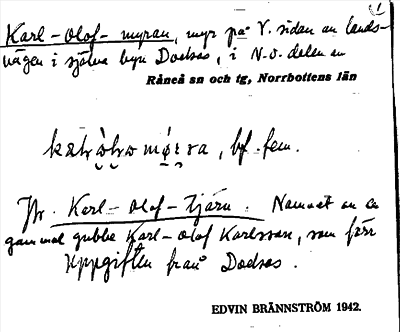 1
Karl-Olof-myran, myr på V. sidan av lands-
vägen i själva byn Dockas, i N.ö. delen av
Råneå sn och tg, Norrbottens län
bf. fem.
Jfr Karl-Olof-tjärn. Namnet av en
gammal gubbe Karl-Olof Karlsson, som förr
Uppgiften från Dockas.
EDVIN BRÄNNSTRÖM 1942.